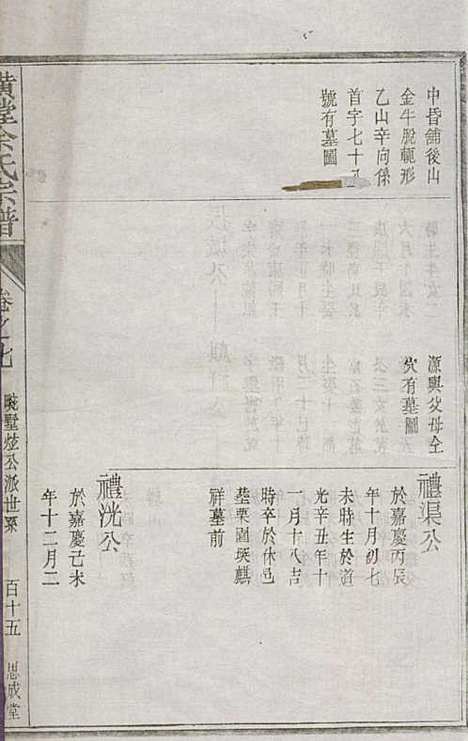 中昏舖後山
金牛脫軛形
乙山辛向係
首字七十五
號有墓圖
源與父母仝
穴有墓圖
禮渠公
於嘉慶丙辰
年十月初七
未時生於道
光辛丑年十
一月十八吉
時卒於休邑
莖栗園塽麒
祥墓前
禮洸公
於嘉慶己未
年十二月二
橫堂余氏宗譜
卷之七
晚墅炫公派世系
百十五
思成堂